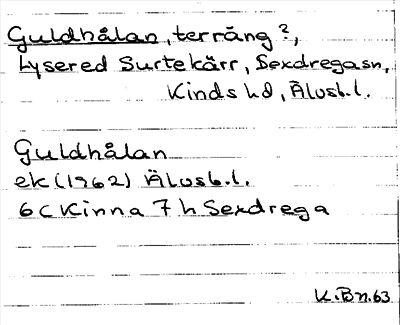 Guldhålan, terräng?,
Lysered Surtekärr, Sexdregasn,
Kinds hd, Älvsb.l.
Guldhålan
ek (1962) Älvsb.l.
6 C Kinna 7 h Sexdrega
K.Bn.63